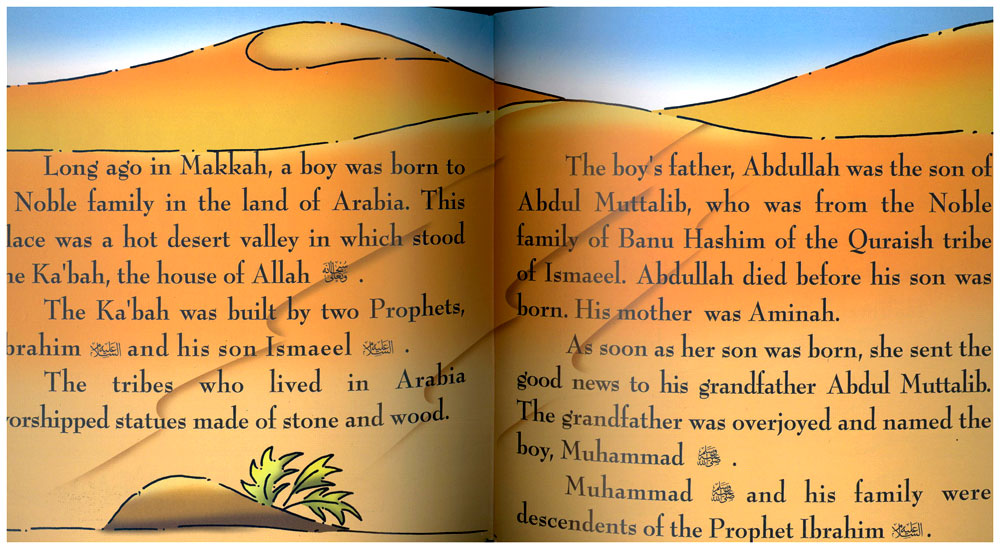 Long ago in Makkah, a boy was born to
Noble family in the land of Arabia. This
lace was a hot desert valley in which stood
he Ka'bah, the house of Allah سبحانه وتعالى .
The Ka'bah was built by two Prophets,
brahim عليه السلام and his son Ismaeel عليه السلام .
The tribes who lived in Arabia
orshipped statues made of stone and wood.
The boy's father, Abdullah was the son of
Abdul Muttalib, who was from the Noble
family of Banu Hashim of the Quraish tribe
of Ismaeel. Abdullah died before his son was
born. His mother was Aminah.
As soon as her son was born, she sent the
good news to his grandfather Abdul Muttalib.
The grandfather was overjoyed and named the
boy, Muhammad ﷺ .
Muhammad ﷺ and his family were
descendents of the Prophet Ibrahim عليه السلام .